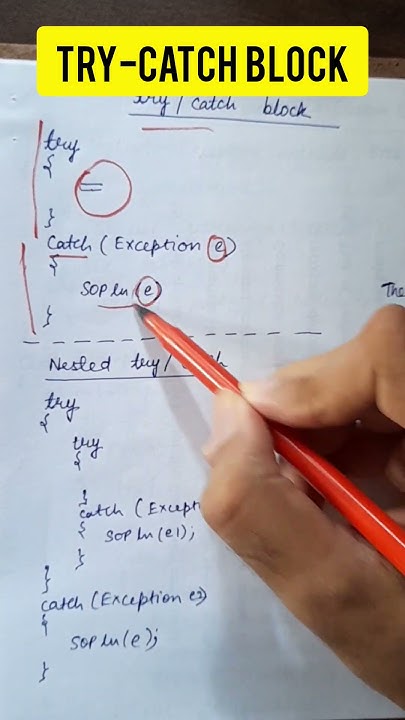 TRY-CATCH BLOCK
try/catch block
try
{
}
Catch (Exception e)
{
SOPln(e)
}
Nested try/
try
{
try
{
}
catch (Excepti
{ SOPln(e1);
}
}
catch (Exception e2)
{
SOPln(e);
}